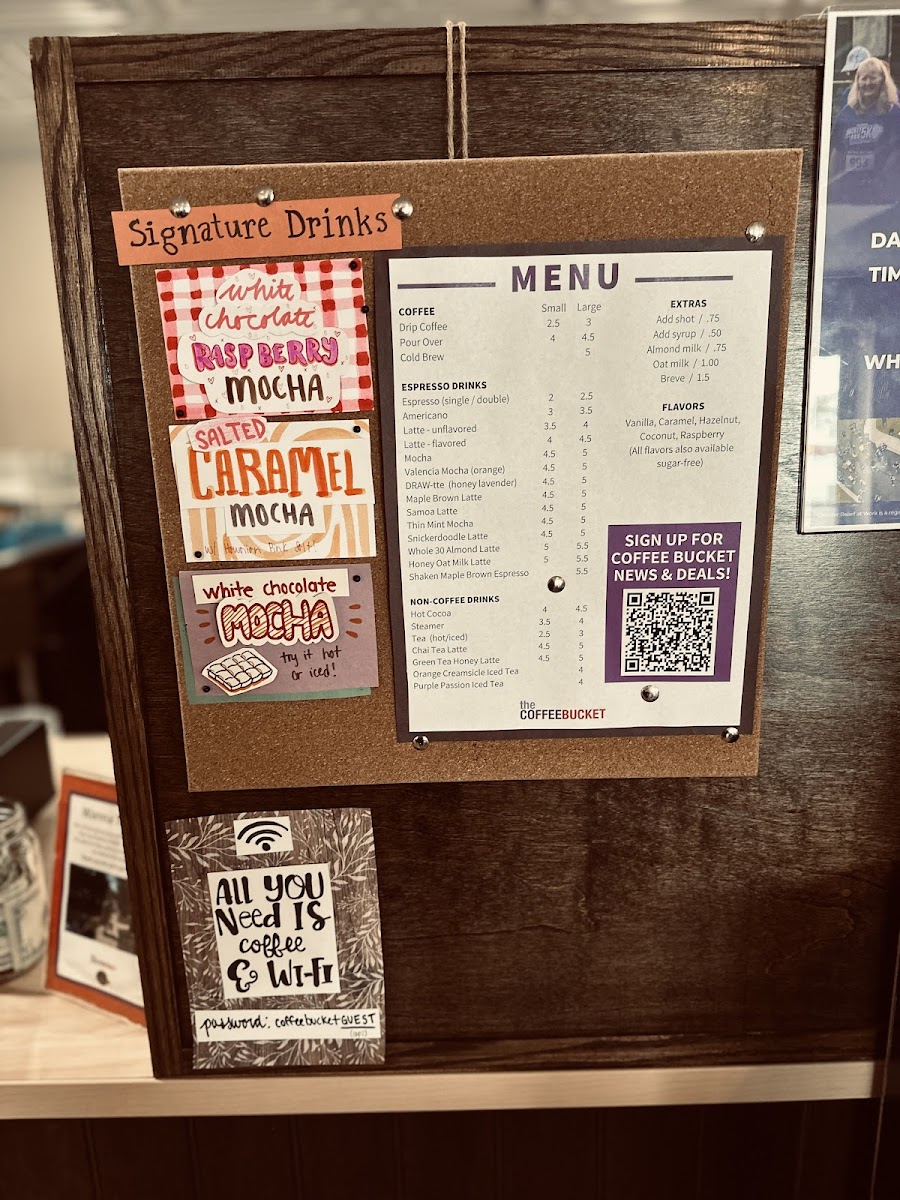 Signature Drinks
white
chocolate
RASPBERRY
MOCHA
SALTED
CARAMEL
MOCHA
w/ Hawaiian Pink Salt!
white chocolate
MOCHA
try it hot
or iced!
MENU
COFFEE Small Large
Drip Coffee 2.5 3
Pour Over 4 4.5
Cold Brew 5
ESPRESSO DRINKS
Espresso (single / double) 2 2.5
Americano 3 3.5
Latte - unflavored 3.5 4
Latte - flavored 4 4.5
Mocha 4.5 5
Valencia Mocha (orange) 4.5 5
DRAW-tte (honey lavender) 4.5 5
Maple Brown Latte 4.5 5
Samoa Latte 4.5 5
Thin Mint Mocha 4.5 5
Snickerdoodle Latte 4.5 5
Whole 30 Almond Latte 5 5.5
Honey Oat Milk Latte 5 5.5
Shaken Maple Brown Espresso 5.5
NON-COFFEE DRINKS
Hot Cocoa 4 4.5
Steamer 3.5 4
Tea (hot/iced) 2.5 3
Chai Tea Latte 4.5 5
Green Tea Honey Latte 4.5 5
Orange Creamsicle Iced Tea 4
Purple Passion Iced Tea 4
EXTRAS
Add shot / .75
Add syrup / .50
Almond milk / .75
Oat milk / 1.00
Breve / 1.5
FLAVORS
Vanilla, Caramel, Hazelnut,
Coconut, Raspberry
(All flavors also available
sugar-free)
SIGN UP FOR
COFFEE BUCKET
NEWS & DEALS!
the
COFFEEBUCKET
All you
Need IS
coffee
& WI-FI
password: coffeebucketGUEST
DA
TIM
WH